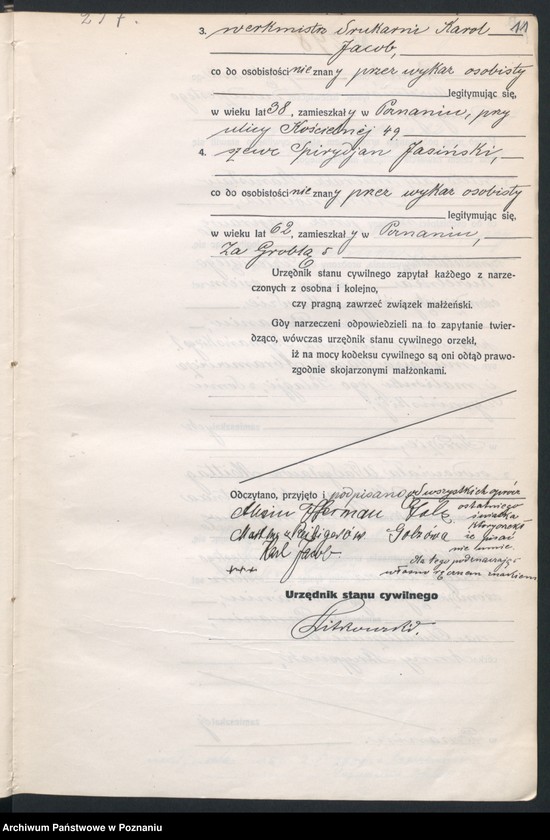 11
3. werkmistrz drukarni Karol
Jacob,
co do osobistości nie znany przez wykaz osobisty
legitymując się,
w wieku lat 38, zamieszkały w Poznaniu, przy
ulicy Kościelnej 49
4. szewc Spirydjan Jasiński,
co do osobistości nie znany przez wykaz osobisty
legitymując się,
w wieku lat 62, zamieszkały w Poznaniu,
Za Groblą 5
Urzędnik stanu cywilnego zapytał każdego z narze-
czonych z osobna i kolejno,
czy pragną zawrzeć związek małżeński.
Gdy narzeczeni odpowiedzieli na to zapytanie twier-
dząco, wówczas urzędnik stanu cywilnego orzekł,
iż na mocy kodeksu cywilnego są oni odtąd prawo-
zgodnie skojarzonymi małżonkami.
Odczytano, przyjęto i podpisano od wszystkich oprócz
ostatniego
świadka
który orzekł
że pisać
nie umie.
Dla tego podznaczając
własnoręcznem znakiem
Golz
Golzowa
Karl Jacob.
+++
Urzędnik stanu cywilnego
Witkowski.
Archiwum Państwowe w Poznaniu